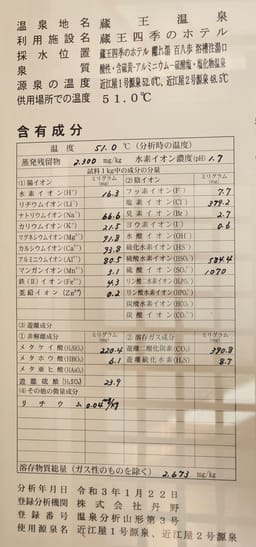 温泉地名 蔵王温泉
利用施設名 蔵王四季のホテル
採水位置 蔵王四季のホテル 離れ湯 百八歩 浴槽注湯口
泉質 酸性・含硫黄-アルミニウム-硫酸塩・塩化物温泉
源泉の温度 近江屋1号源泉52.0℃、近江屋2号源泉48.5℃
供用場所での温度 51.0℃
含有成分
温度 51.0 ℃ (分析時の温度)
蒸発残留物 2.300 mg/kg 水素イオン濃度(pH) 1.7
試料1kg中の成分の分量
(1)陽イオン ミリグラム(mg) (2)陰イオン ミリグラム(mg)
水素イオン(H⁺) 16.3 フッ素イオン(F⁻) 7.7
リチウムイオン(Li⁺) 塩素イオン(Cl⁻) 379.2
ナトリウムイオン(Na⁺) 66.6 臭素イオン(Br⁻) 2.7
カリウムイオン(K⁺) 21.5 ヨウ素イオン(I⁻) 0.6
マグネシウムイオン(Mg²⁺) 31.8 水酸イオン(OH⁻)
カルシウムイオン(Ca²⁺) 93.8 硫化水素イオン(HS⁻)
アルミニウムイオン(Al³⁺) 80.5 硫酸水素イオン(HSO₄⁻) 584.4
マンガンイオン(Mn²⁺) 3.1 硫酸イオン(SO₄²⁻) 1070
鉄(Ⅱ)イオン(Fe²⁺) 4.3
亜鉛イオン(Zn²⁺) 0.2
炭酸水素イオン(HCO₃⁻)
炭酸イオン(CO₃²⁻)
(3)遊離成分
①非解離成分 ミリグラム(mg) ②溶存ガス成分 ミリグラム(mg)
メタケイ酸(H₂SiO₃) 220.4 遊離二酸化炭素(CO₂) 390.8
メタホウ酸(HBO₂) 6.1 遊離硫化水素(H₂S) 8.7
メタ亜ヒ酸(HAsO₂)
遊離硫酸(H₂SO₄) 23.9
(4)その他の微量成分
リチウム 0.04mg/kg
溶存物質総量(ガス性のものを除く) 2.673 mg/kg
分析年月日 令和3年1月22日
登録分析機関 株式会社丹野
登録番号 温泉分析山形第3号
使用源泉名 近江屋1号源泉、近江屋2号源泉